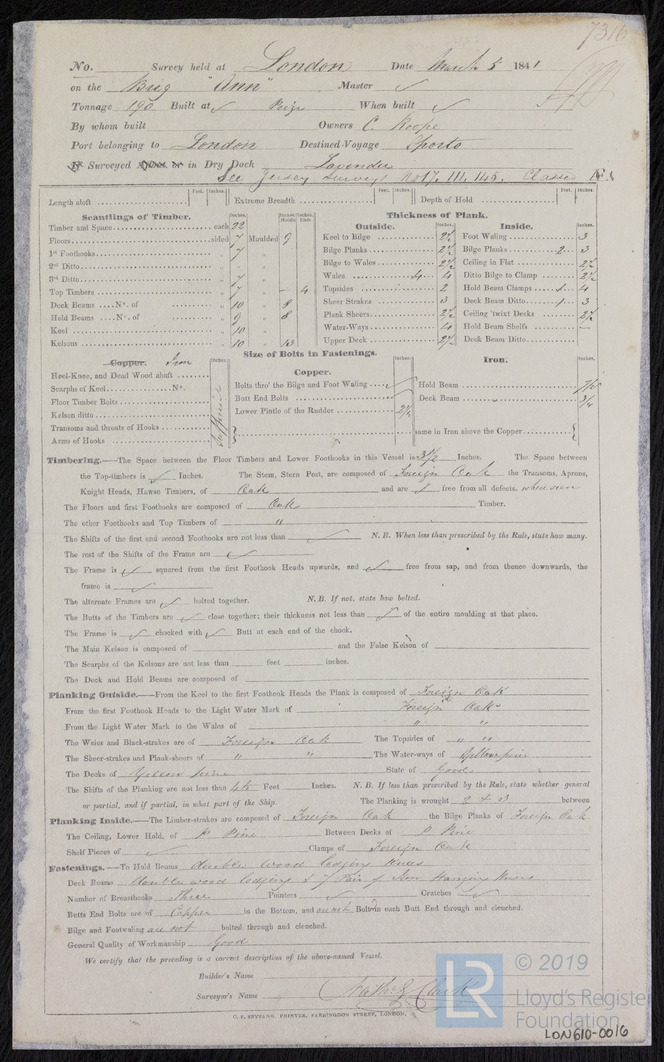 7316
No. Survey held at London Date March 5 1841
on the Brig "Ann" Master ✓
Tonnage 190 Built at ✓ Prize When built ✓
By whom built Owners C.
Port belonging to London Destined Voyage Oporto
If Surveyed Afloat or in Dry Dock Lavender
See Jersey Survey No 17. 111. 145. Classed
Length aloft Feet. Inches. Extreme Breadth Feet. Inches. Depth of Hold Feet. Inches.
Scantlings of Timber. Inches. Inches Molded Inches Ends
Thickness of Plank.
Outside. Inches. Inside. Inches.
Timber and Space each 22 Keel to Bilge 2½ Foot Waling 3
Floors sided 7 Moulded 9 Bilge Planks 2½ Bilge Planks 2 3
1st Foothooks " 7 " Bilge to Wales 2½ Ceiling in Flat 2½
2nd Ditto " " Wales 4 4 Ditto Bilge to Clamp 2½
3rd Ditto " 7 " Topsides 2 Hold Beam Clamps 1 4
Top Timbers " 7 " - 4 Sheer Strakes 3 Deck Beam Ditto 1 3
Deck Beams No. of " 10 " 8 Plank Sheers 2½ Ceiling 'twixt Decks 2½
Hold Beams No. of " 9 " 8 Water-Ways 4 Hold Beam Shelfs
Keel " 10 " Upper Deck 2½ Deck Beam Ditto
Kelsons " 10 "
Size of Bolts in Fastenings.
Copper. Iron Inches. Copper. Inches. Iron. Inches.
Heel-Knee, and Dead Wood abaft Bolts thro' the Bilge and Foot Waling Hold Beam
Scarphs of Keel No. Butt End Bolts Deck Beam 3/4
Floor Timber Bolts Lower Pintle of the Rudder 2½
Kelson ditto
Transoms and throats of Hooks same in Iron above the Copper
Arms of Hooks
Timbering.—The Space between the Floor Timbers and Lower Foothooks in this Vessel is 3½ Inches. The Space between
the Top-timbers is ✓ Inches. The Stem, Stern Post, are composed of Foreign Oak the Transoms, Aprons,
Knight Heads, Hawse Timbers, of Oak and are ✓ free from all defects. when seen
The Floors and first Foothooks are composed of Oak Timber.
The other Foothooks and Top Timbers of "
The Shifts of the first and second Foothooks are not less than ✓ N.B. When less than prescribed by the Rule, state how many.
The rest of the Shifts of the Frame are ✓
The Frame is ✓ squared from the first Foothook Heads upwards, and ✓ free from sap, and from thence downwards, the
frame is ✓
The alternate Frames are ✓ bolted together. N.B. If not, state how bolted.
The Butts of the Timbers are ✓ close together; their thickness not less than ✓ of the entire moulding at that place.
The Frame is ✓ chocked with ✓ Butt at each end of the chock.
The Main Kelson is composed of and the False Kelson of
The Scarphs of the Kelsons are not less than feet inches.
The Deck and Hold Beams are composed of
Planking Outside.—From the Keel to the first Foothook Heads the Plank is composed of Foreign Oak
From the first Foothook Heads to the Light Water Mark of Foreign Oak
From the Light Water Mark to the Wales of " "
The Wales and Black-strakes are of Foreign Oak The Topsides of " "
The Sheer-strakes and Plank-sheers of " " The Water-ways of Yellow pine
The Decks of Yellow Pine State of Good
The Shifts of the Planking are not less than 4½ Feet Inches. N.B. If less than prescribed by the Rule, state whether general
or partial, and if partial, in what part of the Ship. The Planking is wrought 2 & 3 between
Planking Inside.—The Limber-strakes are composed of Foreign Oak the Bilge Planks of Foreign Oak
The Ceiling, Lower Hold, of P Pine Between Decks of P Pine
Shelf Pieces of ✓ Clamps of Foreign Oak
Fastenings.—To Hold Beams double wood lodging Knees
Deck Beams double wood lodging & 7 Pair of Iron Hanging Knees
Number of Breasthooks Three Pointers ✓ Crutches ✓
Butts End Bolts are of Copper in the Bottom, and are not Bolts in each Butt End through and clenched.
Bilge and Footwaling are not bolted through and clenched.
General Quality of Workmanship Good
We certify that the preceding is a correct description of the above-named Vessel.
Builder's Name
Surveyor's Name Nathl. G. Clark
C. F. SEYFANG, PRINTER, FARRINGDON STREET, LONDON.
LR © 2019
Lloyd's Register
Foundation
LON610-0016